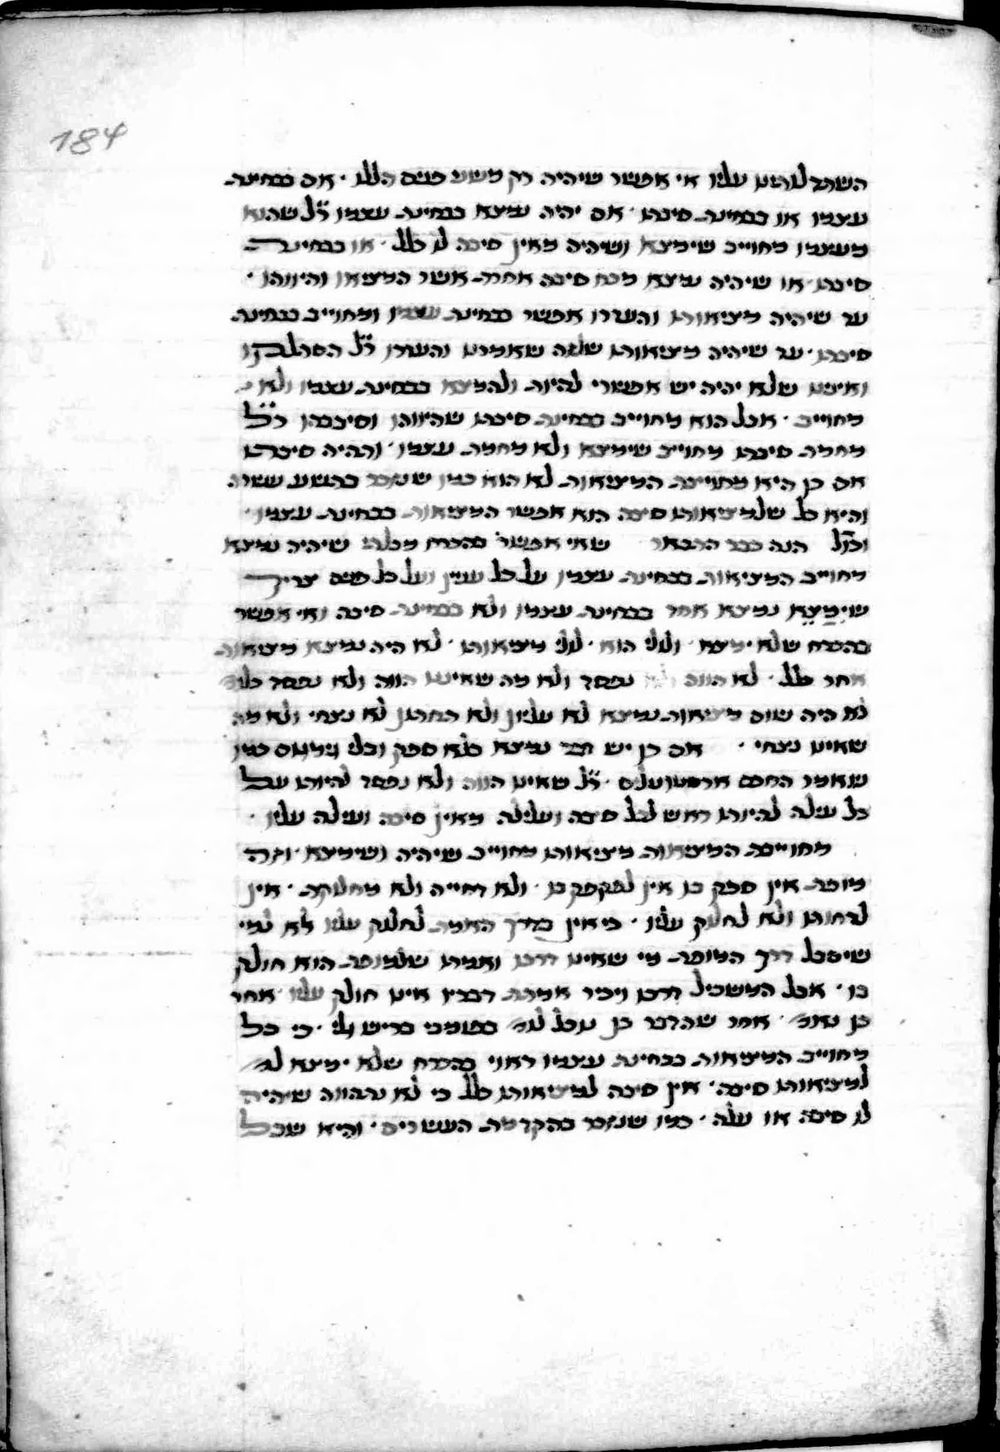 184
השהגד לנו עליו אי אפשר שיהיה רק משני פנים הללו · אם בבחינת
עצמו או בבחינת סיבתו · אם יהיה נמצא בבחינת עצמו ר״ל שהוא
מעצמו מחוייב שימצא ושיהיה מאין סיבה לו כלל · או בבחינת
סיבתו · או שיהיה נמצא מכח סיבה אחרת אשר המציאו והיווהו ·
עד שיהיה מציאותו והעדרו אפשר בבחינת עצמו ומחוייב בבחינת
סיבתו · עד שיהיה מציאותו שלזה שאמרנו והעדרו ר״ל הסתלקו
ואיננו שלא יהיה יש אפשרי להיות ולהמצא בבחינת עצמו ולא
מחוייב · אבל הוא מחוייב בבחינת סיבתו שהיווהו וסיבבהו ר״ל
מחמת סיבתו מחוייב שימצא ולא מחמת עצמו · ותהיה סיבתו
אם כן היא מחוייבת המציאות לא הוא כמו שנזכר בתשע עשרה
והיא כל שלמציאותו סיבה הוא אפשר המציאות בבחינת עצמו ·
וכו׳ הנה כבר התבאר שאי אפשר בהכרח מבלתי שיהיה נמצא
מחוייב המציאות בבחינת עצמו על כל ענין ועל כל פנים צריך
שימצא נמצא אחד בבחינת עצמו ולא בבחינת סיבה ואי אפשר
בהכרח שלא ימצא · ולולי הוא · לולי מציאותו · לא היה נמצא מציאות
אחר כלל · לא הווה ולא נפסד ולא מה שאיננו הווה ולא נפסד כלו׳
לא היה שום מציאות נמצא לא עליון ולא תחתון לא נצחי ולא מה
שאינו נצחי · אם כן יש דבר נמצא בלא ספק ובלי גמגום כמו
שאמר החכם ארסטוטליס · ר״ל שאינו הווה ולא נפסד להיותו על
כל עלה להיותו ראש לכל סיבה ועלילה מאין סיבה ועילה עליו ·
מחוייבת המציאות מציאותו מחוייב שיהיה ושימצא · וזה
מופת אין ספק בו אין לפקפק בו · ולא דחייה ולא מחלוקת · אין
לדחותו ולא לחלוק עליו · כי אין בדרך האמת לחלוק עליו לא למי
שיסכל דרך המופת מי שאינו דרכו ואמתו שלמופת הוא חולק
בו · אבל המשכיל דרכו ויכיר אמתת דבריו אינו חולק עליו · אחר
כן נאמ׳ · אחר שהדבר כן נוכל לומ׳ בסומכי בריש גלי · כי כל
מחוייב המציאות בבחינת עצמו ראוי בהכרח שלא ימצא לו
למציאותו סיבה · אין סיבה למציאותו כלל כי לא נתהווה שיהיה
לו סיבה או עלה · כמו שנזכר בהקדמת העשרים · והיא שכל